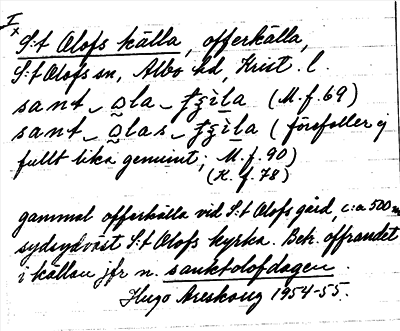 I
x
S:t Olofs källa, offerkälla,
S:t Olofs sn, Albo hd, Krist. l.
sant_ola_ (M.f.69)
sant_olas_ (förefaller ej
fullt lika genuint; M.f.90)
(K.f.78)
gammal offerkälla vid S:t Olofs gård, c:a 500 m
sydsydväst S:t Olofs kyrka. Betr. offrandet
i källan jfr n. sanktolofdagen.
Hugo Areskoug 1954-55.